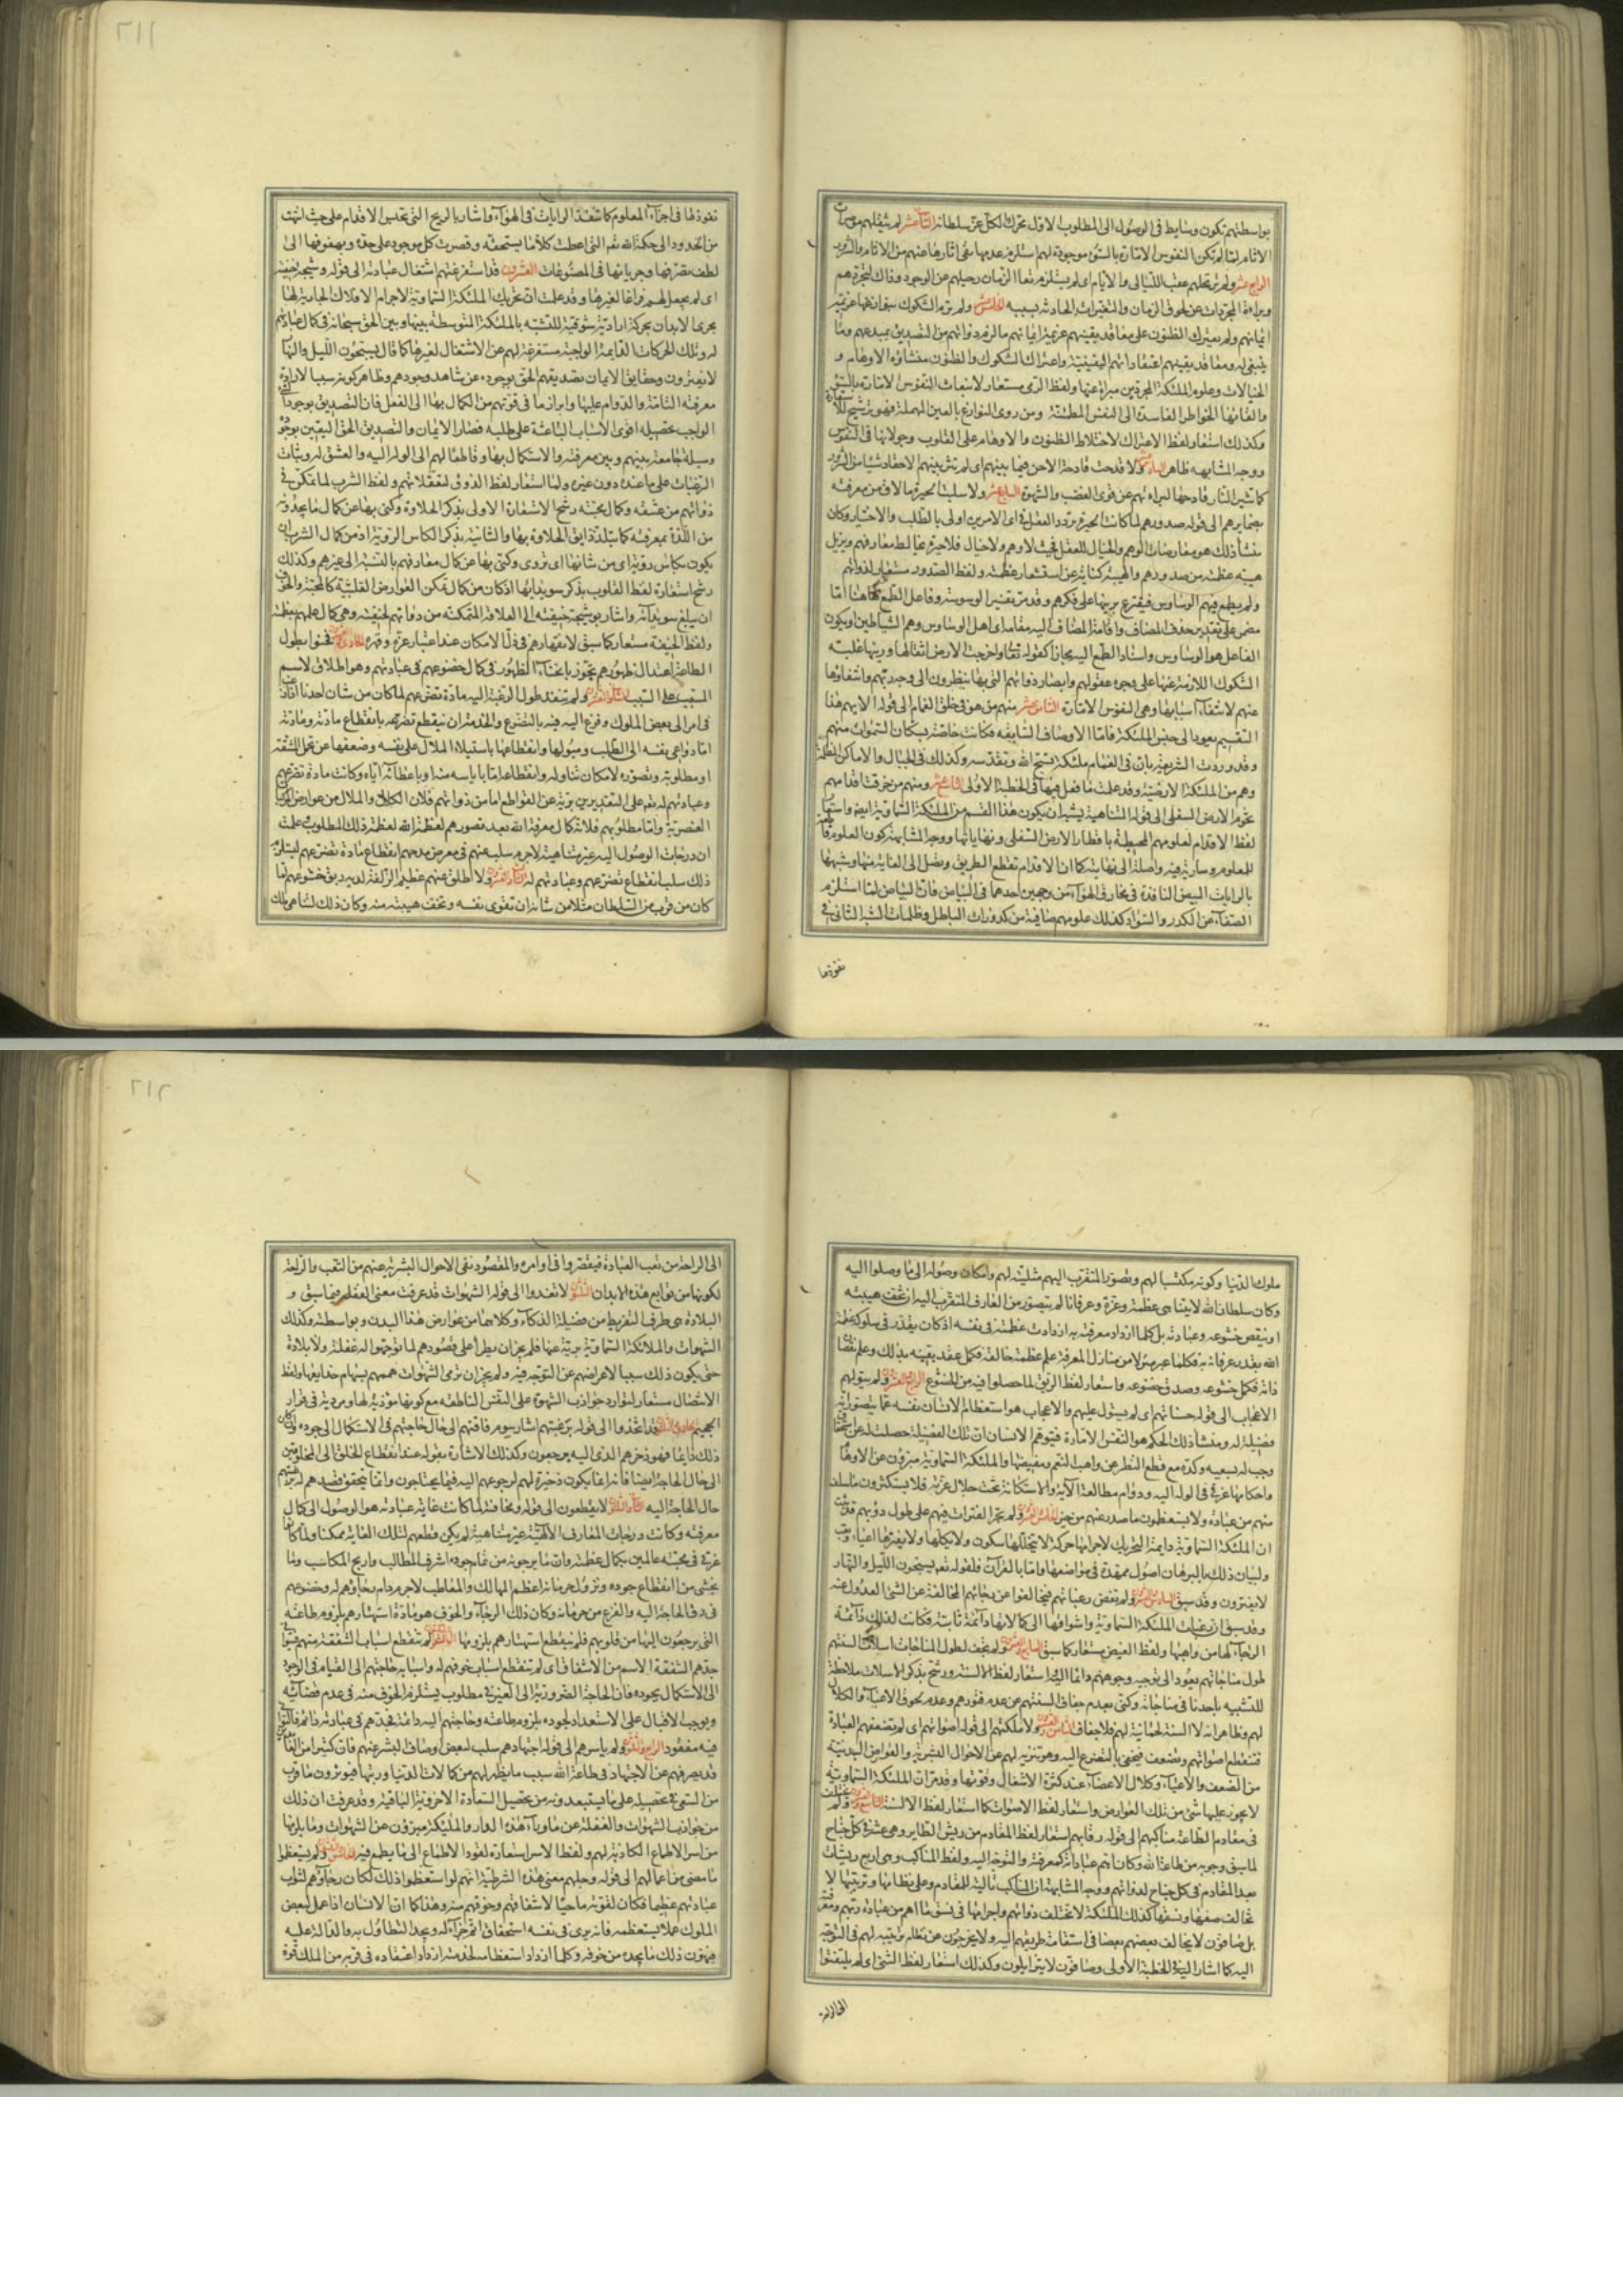 بواسطتهم تكون وسايط فى الوصول الى المطلوب الاول محرك الكل عز سلطانه الثالث عشر لم يثقلهم موصرات
الاثام لما لم تكن النفوس الامارة بالسوء موجودة لهم استلزم عدمها نفى اثارها عنهم من الاثام والشرور
الرابع عشر ولم ترتحلهم عقب الليالى والايام اى لم يستلزم تعاقب الزمان رحيلهم عن الوجود وذلك لتجردهم
وبراءة المجردات عن لحوق الزمان والتغيرات الحادثة بسببه الخامس عشر ولم ترم الشكوك بنوازعها عزيمة
ايمانهم ولم يعترك الظنون على معاقد يقينهم عزيمة ايمانهم مالزم ذواتهم من التصديق بمبدعهم وما
ينبغى له ومعاقد يقينهم اعتقاداتهم اليقينية واعتراك الشكوك والظنون منشاؤه الاوهام و
الخيالات وعلوم الملئكة المجردين مبراة عنها ولفظ الرمى مستعار لانبعاث النفوس الامارة بالسوء
والقائها الخواطر الفاسدة الى النفس المطمئنة ومن روى النوازغ بالغين المعجمة فهو ترشيح للاستعارة
وكذلك استعار لفظ الاعتراك لاختلاط الظنون والاوهام على القلوب وجولانها فى النفوس
ووجه المشابهة ظاهر السادس عشر ولا قدحت قادحة الاحن فيما بينهم اى لم تثر بينهم الاحقاد شيئا من الشرور
كما تثير النار قادحها لبراءتهم عن قوى الغضب والشهوة السابع عشر ولا سلبتهم الحيرة ما لاق من معرفته
بضمايرهم الى قوله صدورهم لما كانت الحيرة تردد العقل فى اى الامرين اولى بالطلب والاختيار وكان
منشأ ذلك هو معارضات الوهم والخيال للعقل فحيث لا وهم ولا خيال فلا حيرة تخالط معارفهم وتزيل
هيبة عظمته من صدورهم والهيبة كناية عن استشعار عظمته ولفظ الصدور مستعار لذواتهم
ولم يطمع فيهم الوساوس فيقترع برينها على فكرهم وقد مر تفسير الوسوسة وفاعل الطمع هاهنا اما
مضمر على تقدير حذف المضاف واقامة المضاف اليه مقامه اى اهل الوساوس وهم الشياطين او يكون
الفاعل هو الوساوس واسناد الطمع اليه مجازا كقوله تعالى واخرجت الارض اثقالها ورينها غلبة
الشكوك اللازمة عنها على وجوه عقولهم وابصار ذواتهم التى بها ينظرون الى وجه ربهم وانتفاؤها
عنهم لانتفاء اسبابها وهى النفوس الامارة الثامن عشر منهم من هو فى خلق الغمام الى قوله الايهم هذا
التقسيم يعود الى جنس الملئكة فاما الاوصاف السابقة فكانت خاصة بسكان السموات منهم
وقد وردت الشريعة بان فى الغمام ملئكة تسبح الله وتقدسه وكذلك فى الجبال والاماكن المظلمة
وهم من الملئكة الارضية وقد علمت ما فعل فيها فى الخطبة الاولى التاسع عشر ومنهم من خرقت اقدامهم
تخوم الارض السفلى الى قوله المتناهية يشبه ان يكون هذا القسم من الملئكة السماوية ايضا واستعار
لفظ الاقدام لعلومهم المحيطة باقطار الارض السفلى ونهاياتها ووجه المشابهة كون العلوم قاطعة
للمعلوم وسارية فيه واصلة الى نهايته كما ان الاقدام تقطع الطريق وتصل الى الغاية منها وشبهها
بالرايات البيض النافذة فى مخارق الهوآء من وجهين احدهما فى البياض فان البياض لما استلزم
الصفاء عن الكدر والسواد كذلك علومهم صافية من كدورات الباطل وظلمات الشبه الثانى فى
نفوذها
٢١١
نفوذها فى اجزاء المعلوم كما تنفذ الرايات فى الهوآء واشار بالريح التى تحبس الاقدام على حيث انتهت
من الحدود الى حكمة الله نعم التى اعطت كلا ما يستحقه وقصرت كل موجود على حده وبهفوفها الى
لطف تصرفها وجريانها فى المصنوعات العشرون قد استفرغتهم اشتغال عبادته الى قوله وشيجة خيفته
اى لم يجعل لهم فراغا لغيرها وقد علمت ان تحريك الملئكة السماوية لاجرام الافلاك الجارية لها
مجرى الابدان بحركة ارادية شوقية للتشبه بالملئكة المتوسطة بينها وبين الحق سبحانه فى كمال عبادتهم
له وتلك الحركات القايمة الواجبة مستفرغة لهم عن الاشتغال لغيرها كما قال يسبحون الليل والنهار
لا يفترون وحقايق الايمان تصديقهم الحق بوجوده عن شاهد وجودهم وظاهر كونه سببا لارادة
معرفته التامة والدوام عليها وابراز ما فى قوتهم من الكمال بها الى الفعل فان التصديق بوجود الشئ
الواجب تحصيله اقوى الاسباب الباعثة على طلبه فصار الايمان والتصديق الحق اليقين بوجوده
وسيلة جامعة بينهم وبين معرفته والاستكمال بها وقاطعا لهم الى الوله اليه والعشق له وثبات
الرغبات على ما عنده دون غيره ولما استعار لفظ الذوق لتعقلاتهم ولفظ الشرب لما تمكن فى
ذواتهم من عشقه وكمال محبته رشح الاستعارة الاولى بذكر الحلاوة وكنى بها عن كمال ما يجدونه
من اللذة بمعرفته كما يتلذذ ذايق الحلاوة بها والثانية بذكر الكاس الروية اذ من كمال الشرب ان
يكون بكاس روية اى من شانها ان تروى وكنى بها عن كمال معارفهم بالنسبة الى غيرهم وكذلك
رشح استعارة لفظ القلوب بذكر سويدائها اذ كان من كمال تمكن العوارض القلبية كالمحبة والخوف
ان يبلغ سويداءه واشار بوشيجة خيفته الى العلاقة المتمكنة من ذواتهم لخيفته وهى كمال علمهم بعظمته
ولفظ الخيفة مستعار كما سبق لانقهارهم فى ذل الامكان عند اعتبار عزه وقهره الحادى والعشرون فحنوا بطول
الطاعة اعتدال ظهورهم تجوز بانحناء الظهور فى كمال خضوعهم فى عبادتهم وهو اطلاق لاسم
المسبب على السبب الثانى والعشرون ولم ينفد طول الرغبة اليه مادة تضرعهم لما كان من شان احدنا اذا رغب
فى امر الى بعض الملوك وفزع اليه فيه بالتضرع والخدمة ان ينقطع تضرعه بانقطاع مادته ومادته
اما دواعى نفسه الى الطلب وميولها وانقطاعها باستيلاء الملال على نفسه وضعفها عن تحمل المشقة
او مطلوبه وتصوره لامكان تناوله وانقطاعه اما باياسه منه او باعطائه اياه وكانت مادة تضرعهم
وعبادتهم له نعم على التقديرين برية عن القواطع اما من ذواتهم فلان الكلال والملال من عوارض المركبات
العنصرية واما مطلوبهم فلانه كمال معرفة الله بعد تصورهم لعظمة الله لعظمة ذلك المطلوب وعلمت
ان درجات الوصول اليه غير متناهية لاجرم سلب عنهم فى معرض مدحهم انقطاع مادة تضرعهم ليستلزم
ذلك سلب انقطاع تضرعهم وعبادتهم له الثالث والعشرون ولا اطلق عنهم عظيم الزلفة لديه ربق خشوعهم لما
كان من قرب من السلطان مثلا من شانه ان تقوى نفسه وتخف هيبته منه وكان ذلك لتناهى ملك
ملوك الدنيا وكونه مكتسبا لهم وتصور المتقرب اليهم مثليته لهم وامكان وصوله الى ما وصلوا اليه
وكان سلطان الله لا يتناهى عظمة وعزة وعرفانا لم يتصور من العارف المتقرب اليه ان تخف هيبته
او ينقص خشوعه وعبادته بل كلما ازداد معرفته به ازدادت عظمته فى نفسه اذ كان يقدر فى سلوكه عظمة
الله بقدر عرفانه به فكلما عبر منزلا من منازل المعرفة علم عظمة خالقه فكمل عقد يقينه بذلك وعلم نقصان
ذاته فكمل خشوعه وصدق خضوعه واستعار لفظ الربق لما حصلوا فيه من الخشوع الرابع والعشرون ولم يتولهم
الاعجاب الى قوله حسناتهم اى لم يستول عليهم والاعجاب هو استعظام الانسان نفسه عما يتصور انه
فضيلة له ومنشأ ذلك الحكم هو النفس الامارة فيتوهم الانسان ان تلك الفضيلة حصلت له عن استحقاق
وجب له بسعيه وكده مع قطع النظر عن واهب النعم ومفيضها والملئكة السماوية مبرؤن عن الاوهام
واحكامها غرقى فى الوله اليه ودوام مطالعة الآية والاستكانة تحت جلال عزته فلا يستكثرون ما سلف
منهم من عبادة ولا يستعظمون ما صدر عنهم من خير الخامس والعشرون ولم تجر الفترات فيهم على طول دؤبهم قد ثبت
ان الملئكة السماوية دايمة التحريك لاجرامها حركة لا يتخللها سكون ولا يكلها ولا يفترها اعياء وتعب
ولبيان ذلك بالبرهان اصول ممهدة فى مواضعها واما بالقرآن فلقوله تعم يسبحون الليل والنهار
لا يفترون وقد سبق السادس والعشرون ولم تغض رغباتهم فيخالفوا عن رجائهم المخالفة عن الشئ العدول عنه
وقد سبق ان رغبات الملئكة السماوية واشواقها الى كمالاتها دائمة ثابتة فكانت لذلك دائمة
الرجاء لها من واهبها ولفظ الغيض مستعار كما سبق السابع والعشرون ولم تجف لطول المناجات اسلات السنتهم
طول مناجاتهم يعود الى توجيه وجوههم دائما اليه واستعار لفظ الالسنة ورشح بذكر الاسلات ملاحظة
للتشبيه باحدنا فى مناجاته وكنى بعدم جفاف السنتهم عن عدم فتورهم وعدم لحوق الاعياء والكلال
لهم وظاهر انه لا السنة لحمانية لهم فلا جفاف الثامن والعشرون ولا ملكتهم الى قوله اصواتهم اى لم تضعفهم العبادة
فتنقطع اصواتهم وتضعف فيخفى بالتضرع اليه وهو تنزيه لهم عن الاحوال البشرية والعوارض البدنية
من الضعف والاعياء وكلال الاعضاء عند كثرة الاشغال وقوتها وقد مر ان الملئكة السماوية
لا يجوز عليها شئ من تلك العوارض واستعار لفظ الاصوات كما استعار لفظ الالسنة التاسع والعشرون ولم تختلف
فى مقاوم الطاعة مناكبهم الى قوله رقابهم استعار لفظ المقادم من ريش الطاير وهى عشرة فى كل جناح
لما سبق وجوبه من طاعة الله وكان اهم عباداته كمعرفته والتوجه اليه ولفظ المناكب وهى اربع ريشات
بعد المقادم فى كل جناح لذواتهم ووجه المشابهة ان المناكب تالية للمقادم وعلى نظامها وترتيبها لا
تخالف صفها ونسقها كذلك الملئكة لا تختلف ذواتهم واجرامها فى نسق ما اهم من عبادة ربهم ومعرفته
بل صافون لا يخالف بعضهم بعضا فى استقامة طريقهم اليه ولا يخرجون عن نظام ترتيبه لهم فى التوجه
اليه كما اشار اليه فى الخطبة الاولى وصافون لا يتزايلون وكذلك استعار لفظ الثنى اى لم يلتفتوا
الى الراحة
٢١٢
الى الراحة من تعب العبادة فيقصروا فى اوامره والمقصود نفى الاحوال البشرية عنهم من التعب والراحة
لكونها من توابع هذه الابدان الثلثون لا تعدوا الى قوله الشهوات قد عرفت معنى الغفلة فيما سبق و
البلادة هى طرف التفريط من فضيلة الذكاء وكلاهما من عوارض هذا البدن وبواسطته وكذلك
الشهوات والملائكة السماوية برية عنها فلم يجز ان يطرأ على قصودهم لما توجهوا له غفلة ولا بلادة
حتى يكون ذلك سببا لاعراضهم عن التوجه فيه ولم يجز ان ترمى الشهوات هممهم بسهام خدايعها ولفظ
الانتضال مستعار لتوارد جواذب الشهوة على النفس الناطقة مع كونها مؤذية لها ومردية فى قرار
الجحيم الحادى والثلثون قد اتخذوا الى قوله برغبتهم اشار بيوم فاقتهم الى حال حاجتهم فى الاستكمال الى جوده وان كان
ذلك دائما فهو ذخرهم الذى اليه يرجعون وكذلك الاشارة بقوله عند انقطاع الخلق الى المخلوقين
الى حال الحاجة ايضا فانه انما يكون ذخيرة لهم لرجوعهم اليه فيما يحتاجون وانما يتحقق قصدهم له برغبتهم
حال الحاجة اليه الثانى والثلثون لا يقطعون الى قوله ومخافته لما كانت غاية عبادته هو الوصول الى كمال
معرفته وكانت درجات المعارف الالهية غير متناهية لم يكن قطعهم لتلك الغاية ممكنا ولما كانوا
غرقى فى محبته عالمين بكمال عظمته وان ما يرجونه من تمام جوده اشرف المطالب واربح المكاسب وما
يخشى من انقطاع جوده ونزول حرمانه اعظم المهالك والمعاطب لاجرم دام رجاؤهم له وخضوعهم
فى رق الحاجة اليه والفزع من حرمانه وكان ذلك الرجاء والخوف هو مادة استهتارهم بلزوم طاعته
التى يرجعون اليها من قلوبهم فلم ينقطع استهتارهم بلزومها الثالث والثلثون لم تنقطع اسباب الشفقة منهم فينوا
جدهم الشفقة الاسم من الاشفاق اى لم تنقطع اسباب خوفهم له واسبابه حاجتهم الى القيام فى الوجود
الى الاستكمال بجوده فان الحاجة الضرورية الى الغير فى مطلوب يستلزم الخوف منه فى عدم قضائه
ويوجب الاقبال على الاستعداد لجوده بلزوم طاعته وحاجتهم اليه دائمة فجدهم فى عبادته دائم فالتوانى
فيه مفقود الرابع والثلثون ولم ياسرهم الى قوله اجتهادهم سلب لبعض اوصاف البشر عنهم فان كثيرا من الناس
قد يصرفهم عن الاجتهاد فى طاعة الله سبب ما يظهر لهم من كمالات الدنيا وزينتها فيؤثرون ما قرب
من السعى فى تحصيله على ما يستبعدونه من تحصيل السعادة الاخروية الباقية وقد عرفت ان ذلك
من جواذب الشهوات والغفلة عن ما ورآء هذه الدار والملئكة مبرؤن عن الشهوات وما يلزمها
من اسر الاطماع الكاذبة لهم ولفظ الاسر استعارة لقود الاطماع الى ما يطمع فيه الخامس والثلثون ولم يستعظموا
ما مضى من اعمالهم الى قوله وجلهم معنى هذه الشرطية انهم لو استعظموا ذلك لكان رجاؤهم لثواب
عبادتهم عظيما فكان لقوته ماحيا لاشفاقهم وخوفهم منه وهذا كما ان الانسان اذا عمل لبعض
الملوك عملا يستعظمه فانه يرى فى نفسه استحقاق اتم جزاء له ويجد التطاول به والدالة عليه
فيهون ذلك ما يجده من خوفه وكلما ازداد استعظامه لخدمته ازداد اعتقاده فى قربه من الملك قوة